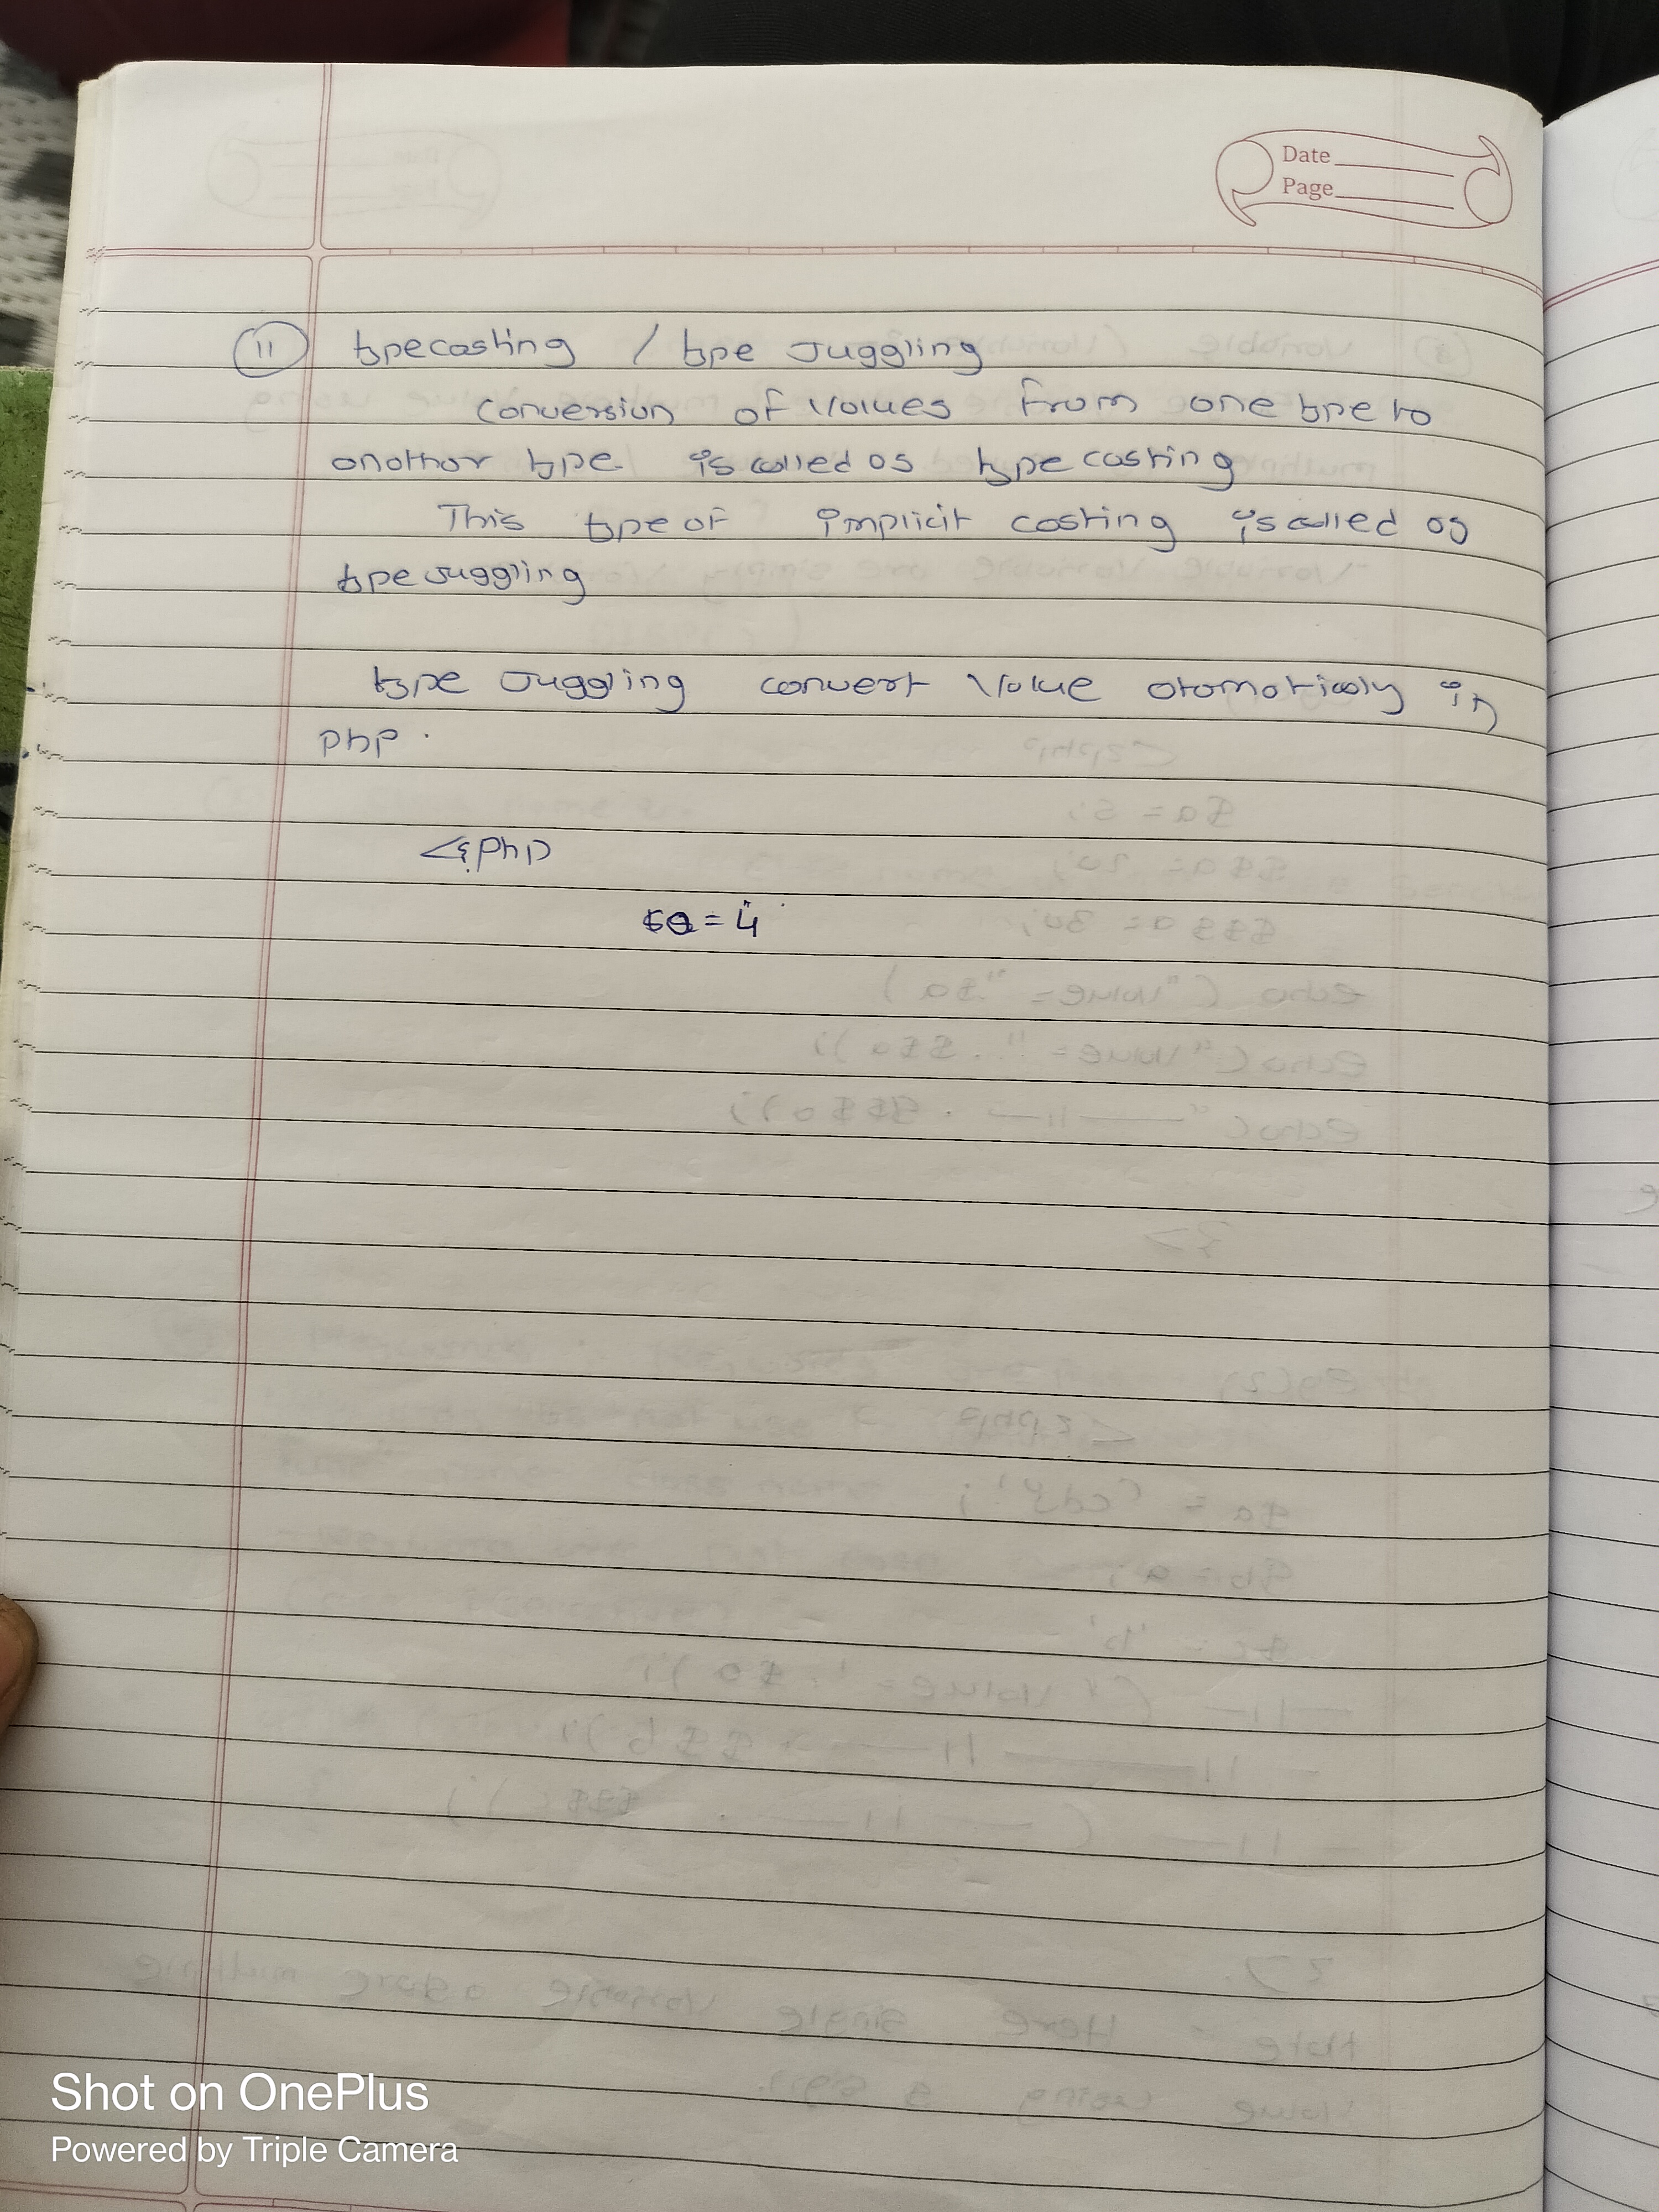 Date
Page
11 typecasting / type Juggling
conversion of values from one type to
another type is called as type casting
This type of implicit casting is called as
type Juggling
type Juggling convert value otomaticaly in
php.
<?php
$a = 4
Shot on OnePlus
Powered by Triple Camera